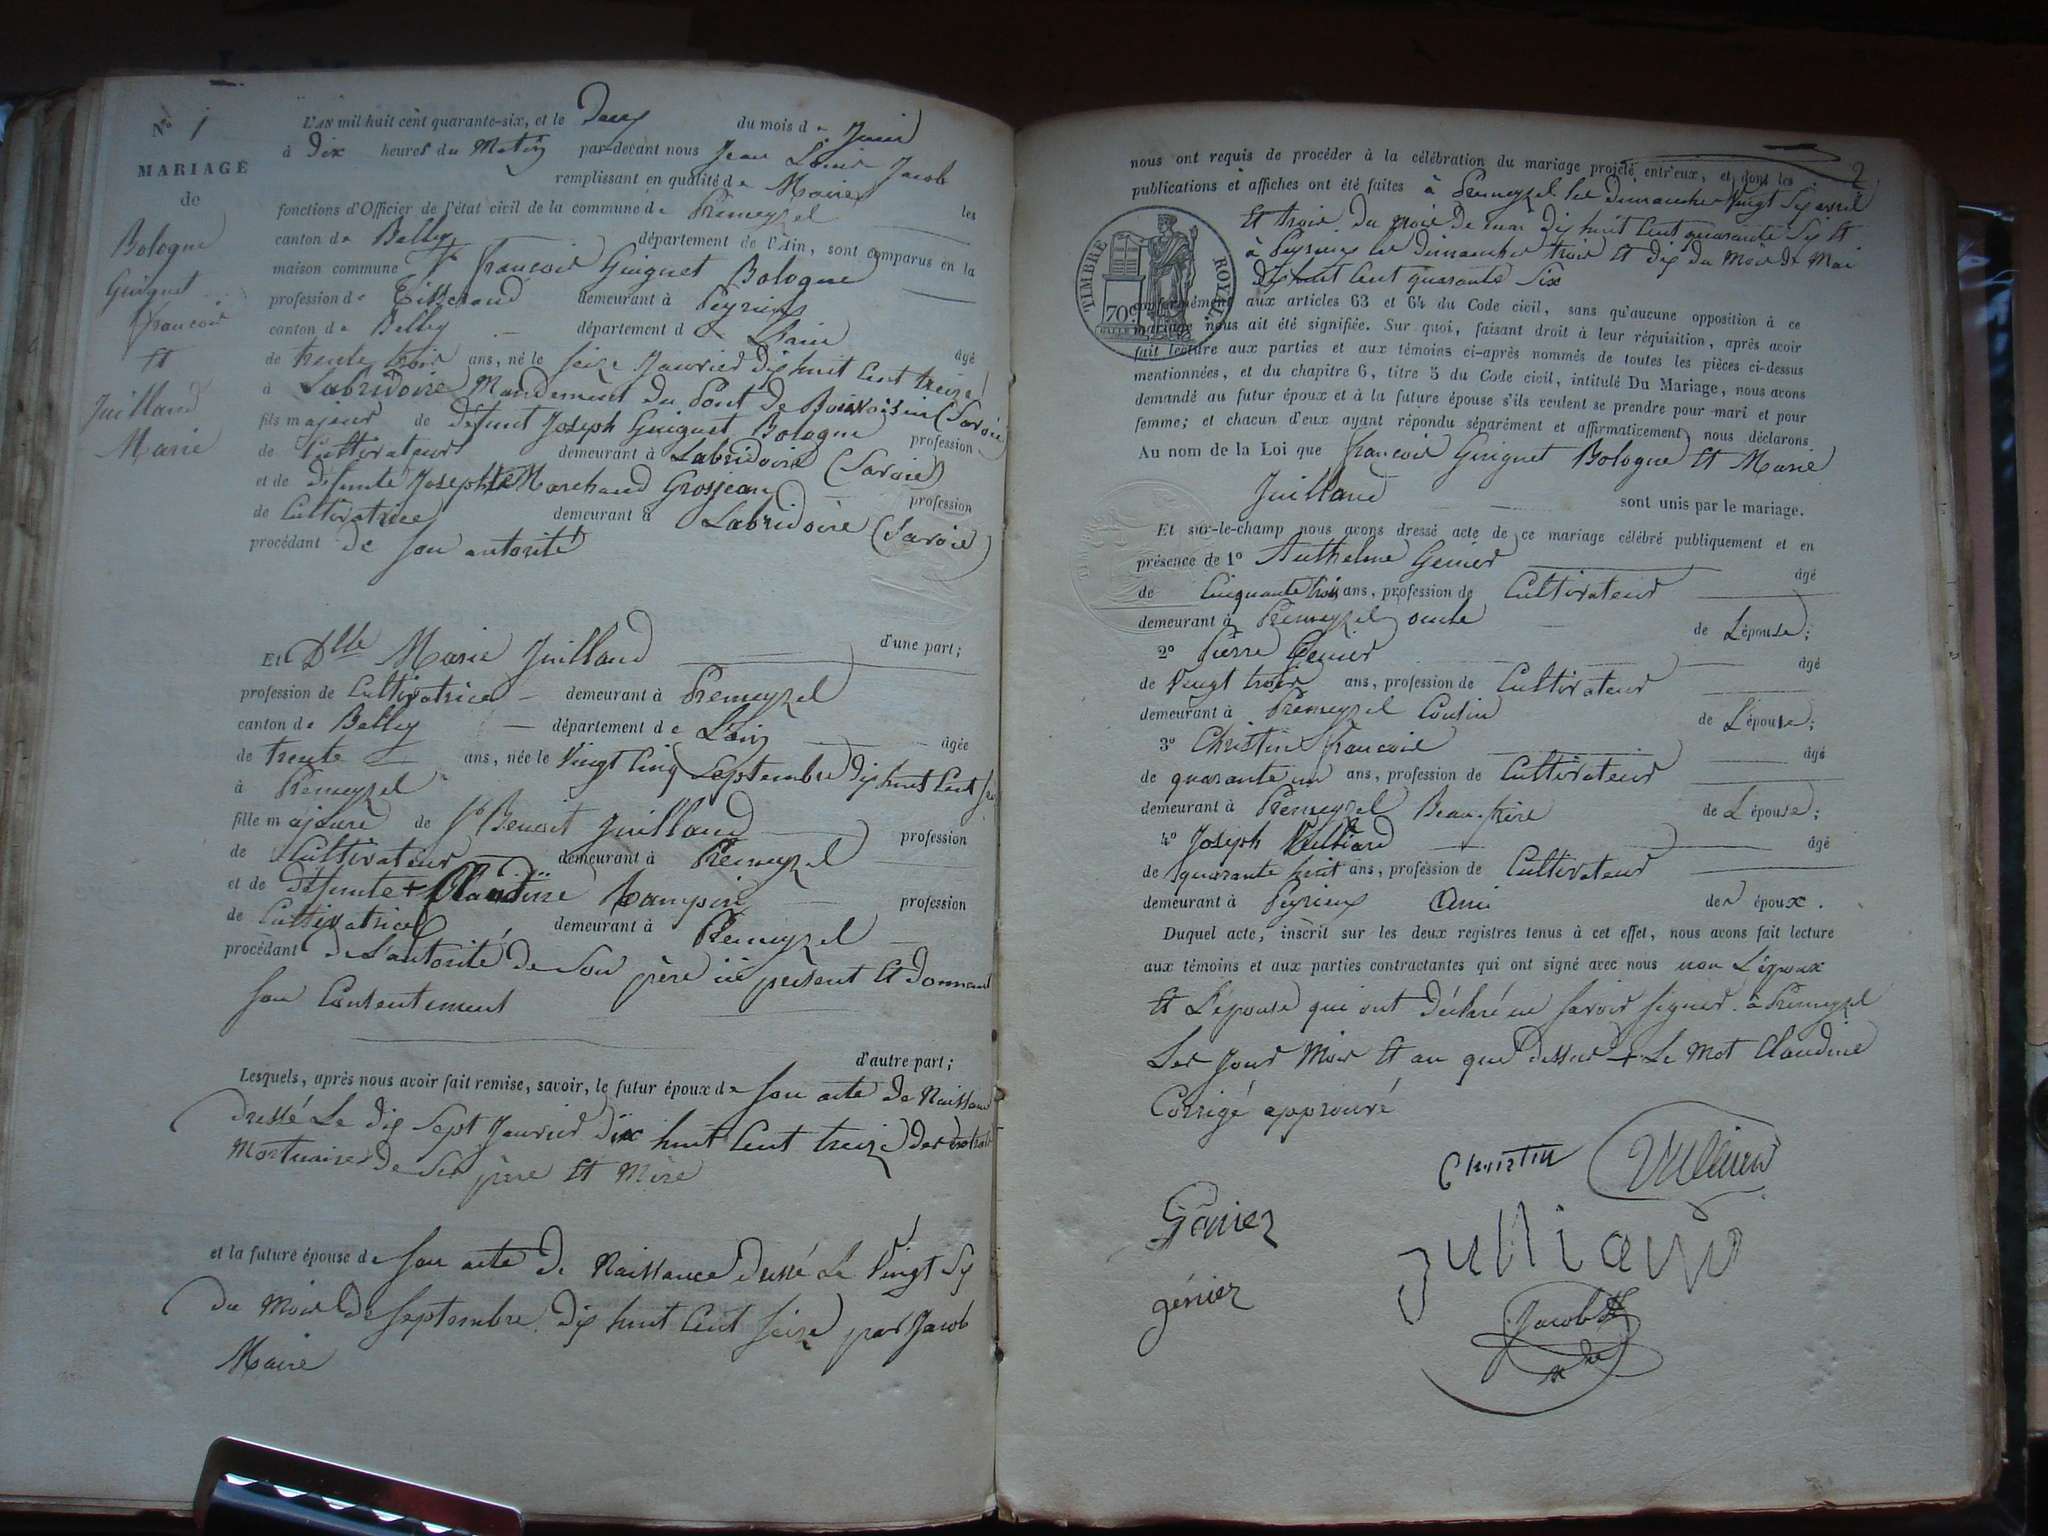 N° 1
MARIAGE
de
Bologne
Guiguet
francois
Et
Juilland
Marie
L'AN mil huit cent quarante-six, et le deux du mois de Juin
à Dix heures du Matin par-devant nous Jean Louis Jacob
remplissant en qualité de Maire les
fonctions d'Officier de l'état civil de la commune de Prémeyzel
canton de Belley département de l'Ain, sont comparus en la
maison commune Sr francois Guiguet Bologne
profession de Tisserand demeurant à Peyrieu
canton de Belley département de L'ain âgé
de trente trois ans, né le seize Janvier dix huit Cent treize
à Labridoire Mandement du Pont de Bonvoisin (Savoie)
fils majeur de défunt Joseph Guiguet Bologne profession
de Cultivateur demeurant à Labridoire (Savoie)
et de défunte Josephte Marchand Grosjean profession
de Cultivatrice demeurant à Labridoire (Savoie)
procédant de son autorité
d'une part;
Et Dlle Marie Juilland
profession de Cultivatrice demeurant à Prémeyzel
canton de Belley département de L'ain âgée
de trente ans, née le Vingt Cinq Septembre dix huit Cent
à Prémeyzel
fille majeure de Sr Benoit Juilland profession
de Cultivateur demeurant à Prémeyzel
et de défunte + Claudine profession
de Cultivatrice demeurant à Prémeyzel
procédant de L'autorité de Son père ici présent Et donnant
son Consentement
d'autre part;
Lesquels, après nous avoir fait remise, savoir, le futur époux de son acte de Naissance
dressé Le dix Sept Janvier dix huit Cent treize des extraits
Mortuaires de Ses père Et Mère
et la future épouse de son acte de Naissance dressé Le Vingt Six
du Mois de Septembre dix huit Cent seize par Jacob
Maire
2
nous ont requis de procéder à la célébration du mariage projeté entr'eux, et dont les
publications et affiches ont été faites à Prémeyzel les dimanches Vingt Six avril
Et trois du mois de mai dix huit Cent quarante Six Et
à Peyrieu les dimanches trois Et dix du Mois de Mai
dix huit Cent quarante Six
TIMBRE ROYAL
70c
conformément aux articles 63 et 64 du Code civil, sans qu'aucune opposition à ce
mariage nous ait été signifiée. Sur quoi, faisant droit à leur réquisition, après avoir
fait lecture aux parties et aux témoins ci-après nommés de toutes les pièces ci-dessus
mentionnées, et du chapitre 6, titre 5 du Code civil, intitulé Du Mariage, nous avons
demandé au futur époux et à la future épouse s'ils veulent se prendre pour mari et pour
femme; et chacun d'eux ayant répondu séparément et affirmativement nous déclarons
Au nom de la Loi que francois Guiguet Bologne Et Marie
Juilland sont unis par le mariage.
Et sur-le-champ nous avons dressé acte de ce mariage célébré publiquement et en
présence de 1° Anthelme Genier âgé
de Cinquante trois ans, profession de Cultivateur
demeurant à Prémeyzel oncle de L'épouse;
2° Pierre Genier âgé
de Vingt trois ans, profession de Cultivateur
demeurant à Prémeyzel Cousin de L'épouse;
3° Christin francois âgé
de quarante un ans, profession de Cultivateur
demeurant à Prémeyzel Beau-frère de L'épouse;
4° Joseph âgé
de quarante huit ans, profession de Cultivateur
demeurant à Peyrieu Ami de époux.
Duquel acte, inscrit sur les deux registres tenus à cet effet, nous avons fait lecture
aux témoins et aux parties contractantes qui ont signé avec nous non L'époux
Et L'épouse qui ont déclaré ne savoir signer. à Prémeyzel
Les Jour Mois Et an que dessus + Le Mot Claudine
Corrigé approuvé
Christin
Génier
Julliand
génier
Jacob